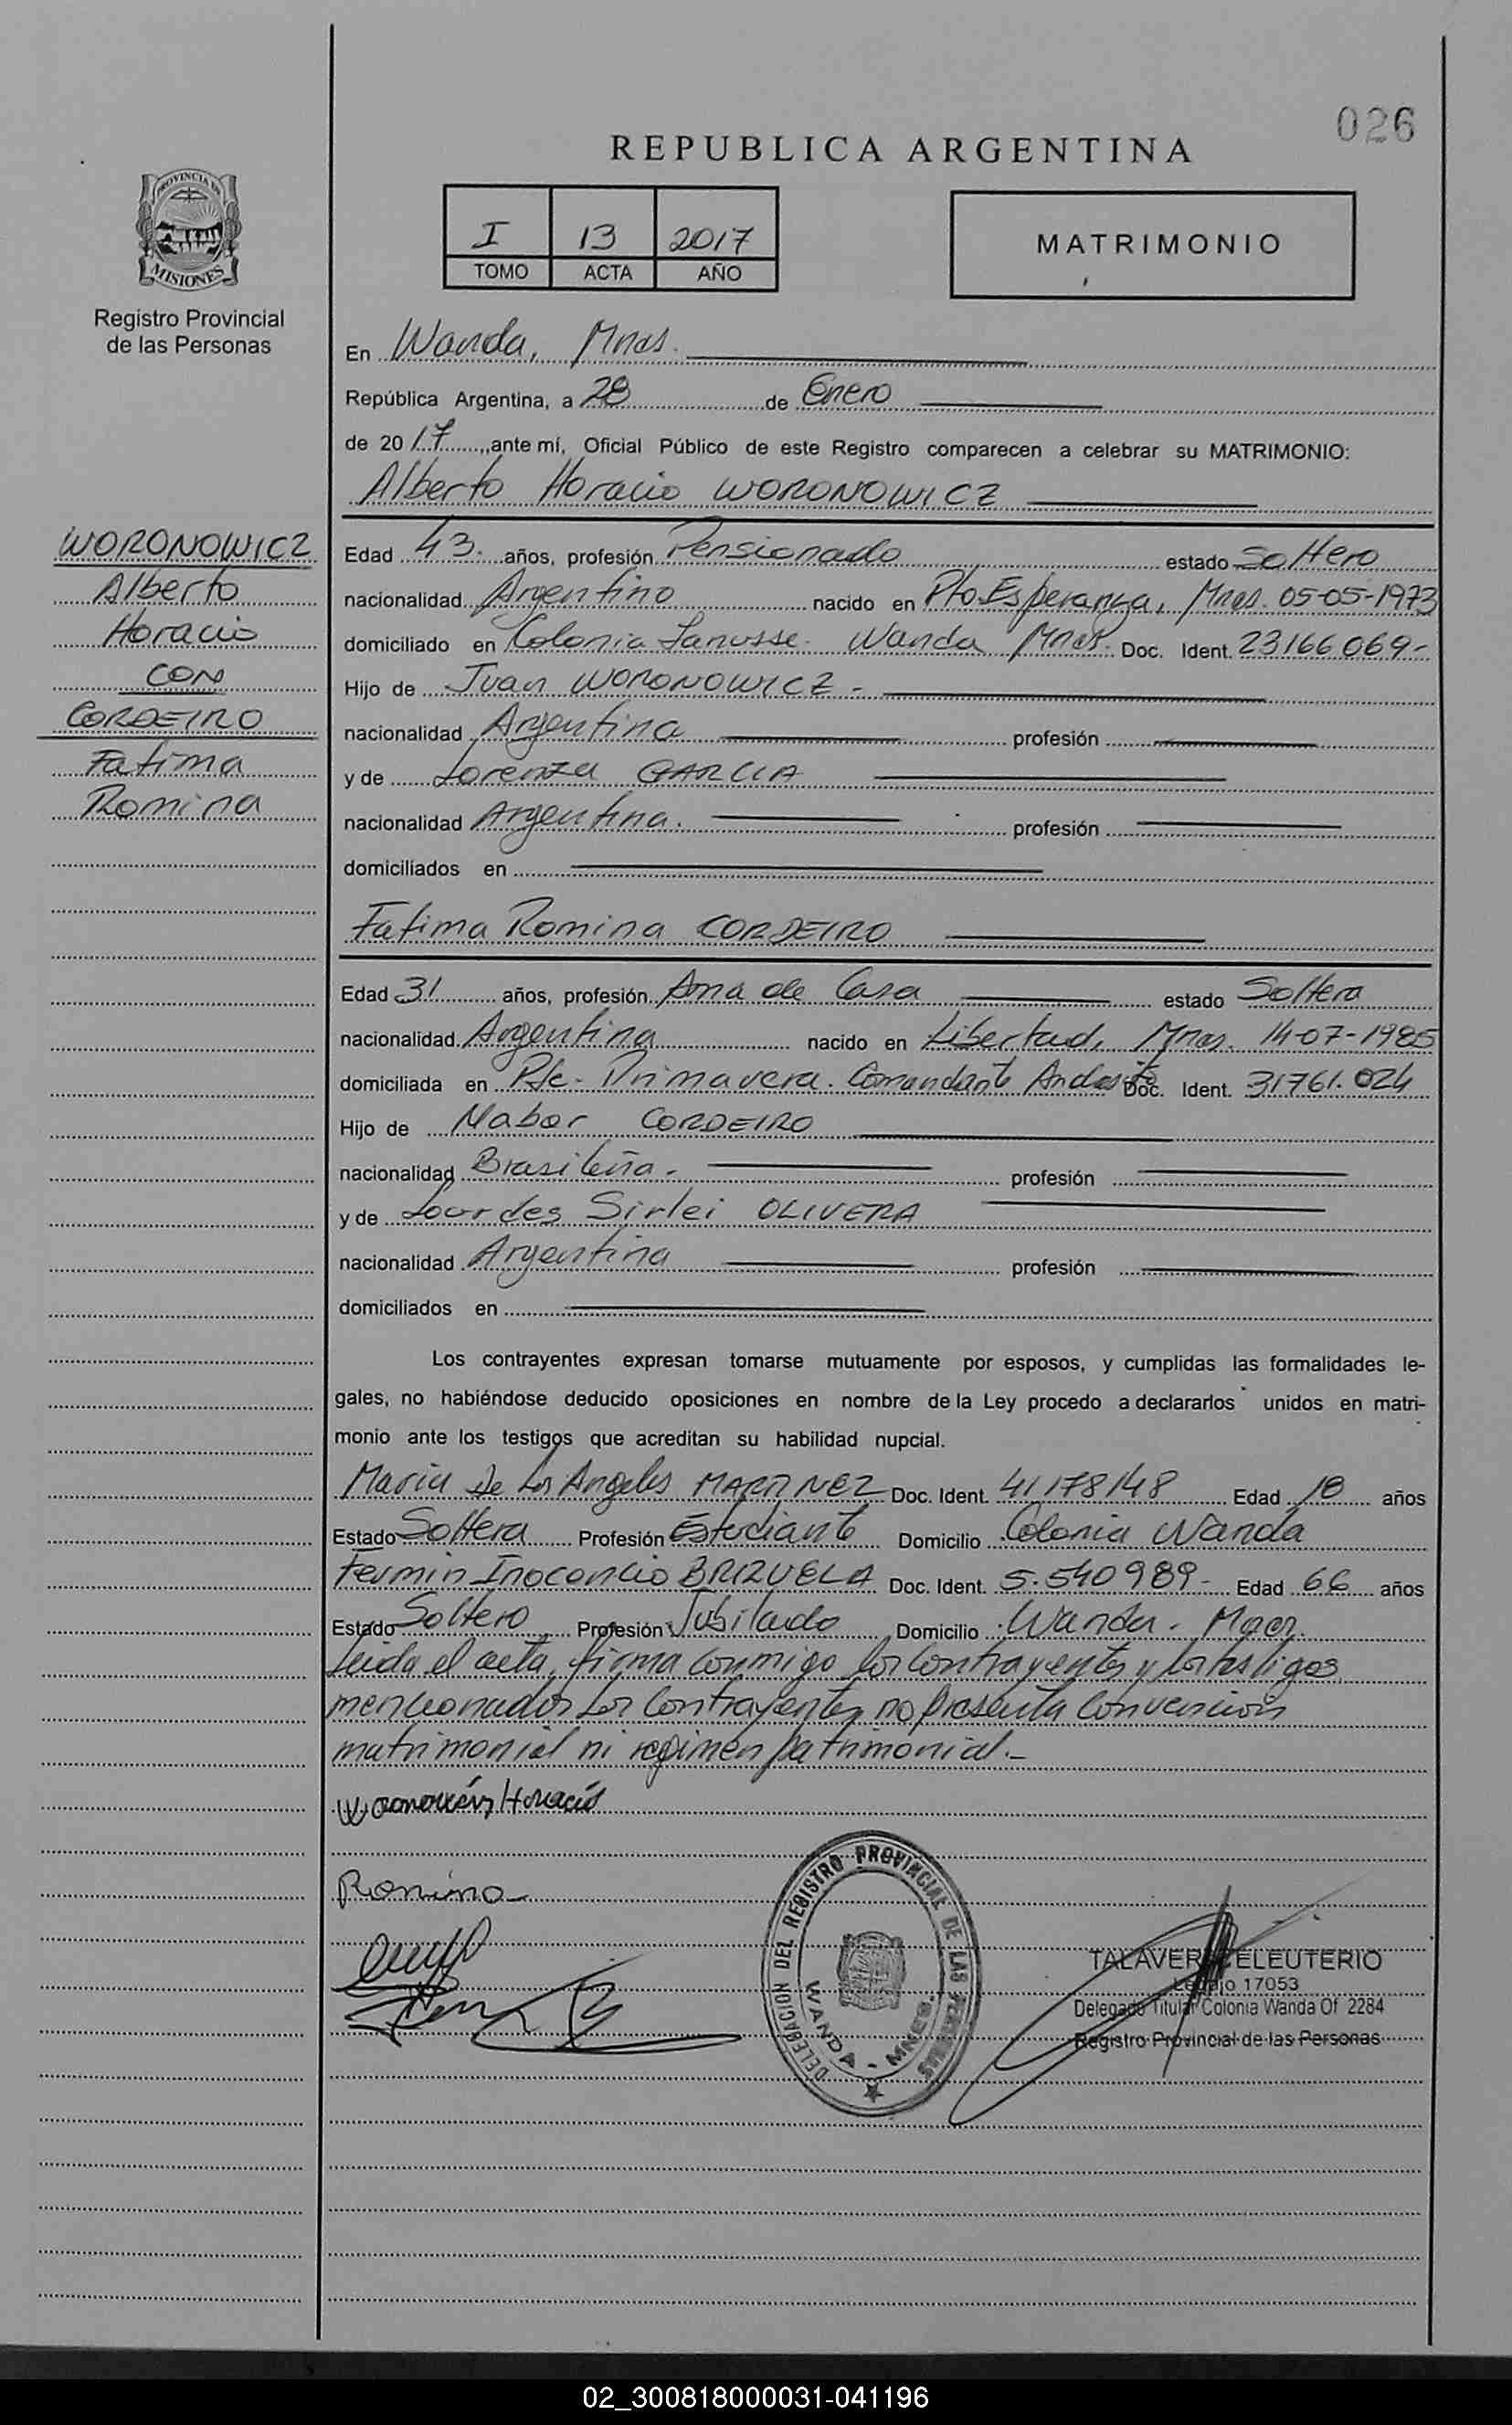 026
REPUBLICA ARGENTINA
PROVINCIA DE
MISIONES
Registro Provincial
de las Personas
I 13 2017
TOMO ACTA AÑO
MATRIMONIO
En Wanda, Mnes.
República Argentina, a 28 de Enero
de 2017, ante mí, Oficial Público de este Registro comparecen a celebrar su MATRIMONIO:
Alberto Horacio WORONOWICZ
WORONOWICZ
Alberto
Horacio
CON
CORDEIRO
Fatima
Romina
Edad 43. años, profesión Pensionado estado Soltero
nacionalidad Argentino nacido en Pto. Esperanza, Mnes. 05-05-1973
domiciliado en Colonia Lanusse. Wanda Mnes. Doc. Ident. 23166069-
Hijo de Juan WORONOWICZ -
nacionalidad Argentina profesión
y de Lorenza GARCIA
nacionalidad Argentina. profesión
domiciliados en
Fatima Romina CORDEIRO
Edad 31 años, profesión Ama de Casa estado Soltera
nacionalidad Argentina nacido en Libertad, Mnes. 14-07-1985
domiciliada en Pje. Primavera. Comandante Andresito Doc. Ident. 31761.024
Hijo de Nabor CORDEIRO
nacionalidad Brasileña. profesión
y de Lourdes Sirlei OLIVERA
nacionalidad Argentina profesión
domiciliados en
Los contrayentes expresan tomarse mutuamente por esposos, y cumplidas las formalidades le-
gales, no habiéndose deducido oposiciones en nombre de la Ley procedo a declararlos unidos en matri-
monio ante los testigos que acreditan su habilidad nupcial.
Maria De Los Angeles MARTINEZ Doc. Ident. 41178148 Edad 18 años
Estado Soltera Profesión Estudiante Domicilio Colonia Wanda
Fermin Inocencio BRIZUELA Doc. Ident. 5.540989- Edad 66 años
Estado Soltero Profesión Jubilado Domicilio Wanda. Mnes.
Leida el acta, firma conmigo los contrayentes y los testigos
mencionados Los Contrayentes no presenta Convencion
matrimonial ni regimen patrimonial.-
Horacio
Romina
DELEGACION DEL REGISTRO PROVINCIAL DE LAS PERSONAS
WANDA - MNES.
TALAVERA ELEUTERIO
Legajo 17053
Delegado Titular Colonia Wanda Of 2284
Registro Provincial de las Personas
02_300818000031-041196